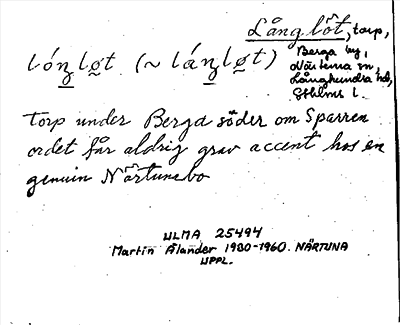 Långlöt, torp,
Berga by,
Närtuna sn,
Långhundra hd,
Sthlms l.
lóŋløt (~ láŋløt)
Torp under Berga söder om Sparren
ordet får aldrig grav accent hos en
genuin Närtunabo
ULMA 25494
Martin Ålander 1930-1960. NÄRTUNA
UPPL.